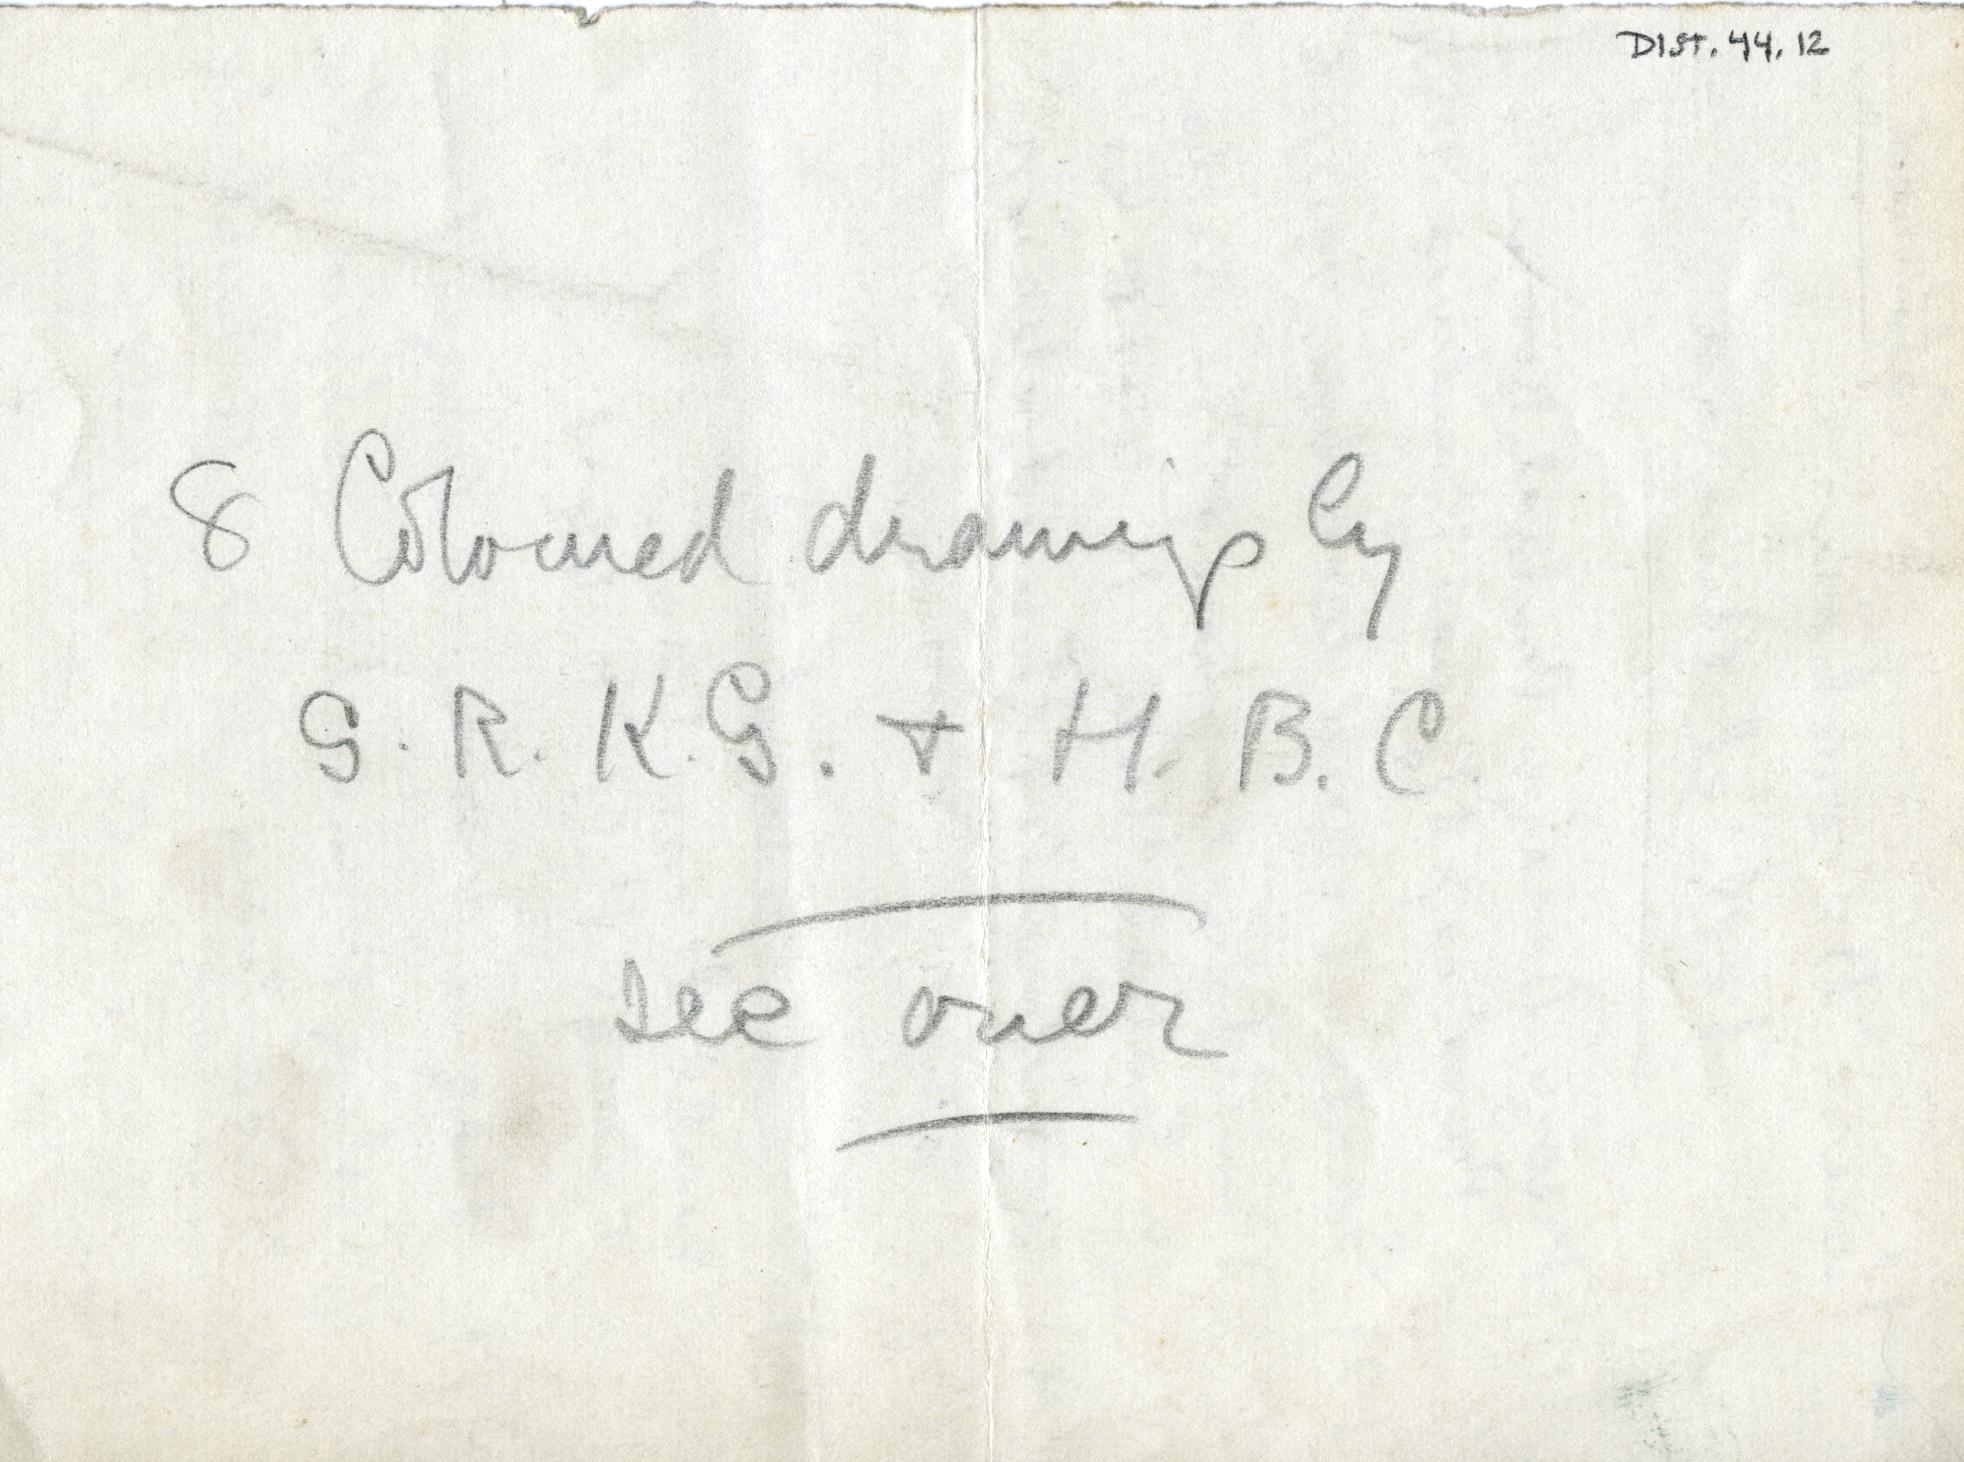 DIST. 44. 12
8 Coloured drawings by
S. R. K. G. + H. B. C.
see over